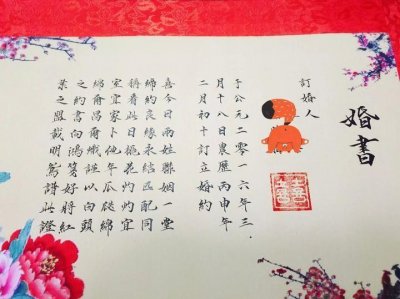 婚書
訂婚人
于公元二零一六年三
月十八日農歷丙申年
二月初十訂立婚約
喜今日兩姓聯姻一堂
締約良緣永結匹配同
稱看此日桃花灼灼宜
室宜家卜他年瓜瓞綿
綿爾昌爾熾謹以白頭
之約書向鴻箋好將紅
葉之盟載明鴛譜此證
囍